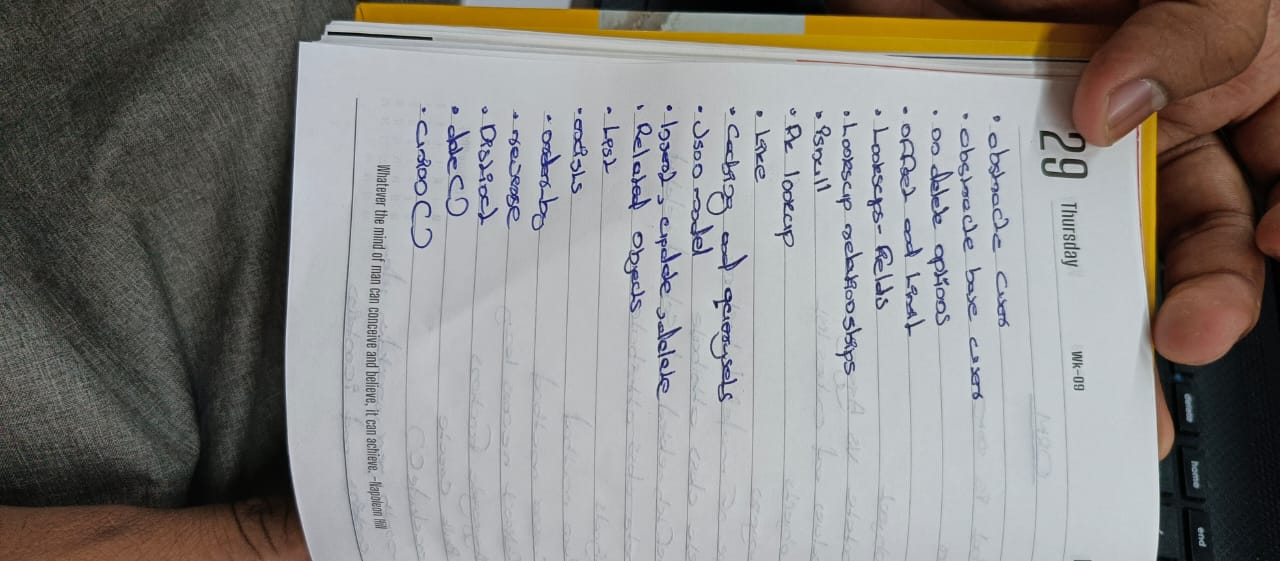 29 Thursday Wk-09
• abstracte user
• abstracte base user
• on delete options
• offset and limit
• Lookups - fields
• Lookup relationships
• isnull
• Pk lookup
• Like
• Caching and querysets
• Json model
• Insert, update, delete
• Related objects
• List
• exists
• order by
• reverse
• Distinct
• date()
• union()
Whatever the mind of man can conceive and believe, it can achieve. -Napoleon Hill
delete
home
end